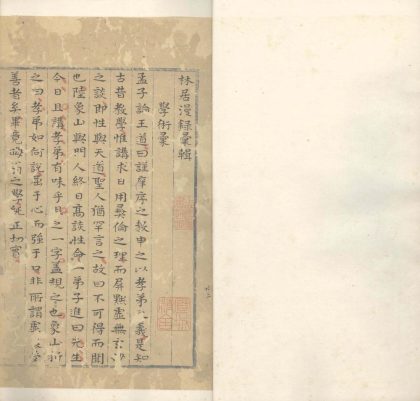 林居漫錄彙輯
學術彙
孟子論王道曰謹庠序之敎申之以孝弟之義是知
古昔敎學惟講求日用彝倫之理而屏黜虛無
之談卽性與天道聖人猶罕言之故曰不可得而聞
也陸象山與門人終日高談性命一弟子進曰先生
今日且講孝弟有味乎曰之一字蓋規之也象山
之曰孝弟如何說黑于心而強于口非所謂
善者矣畢竟之學純正切實